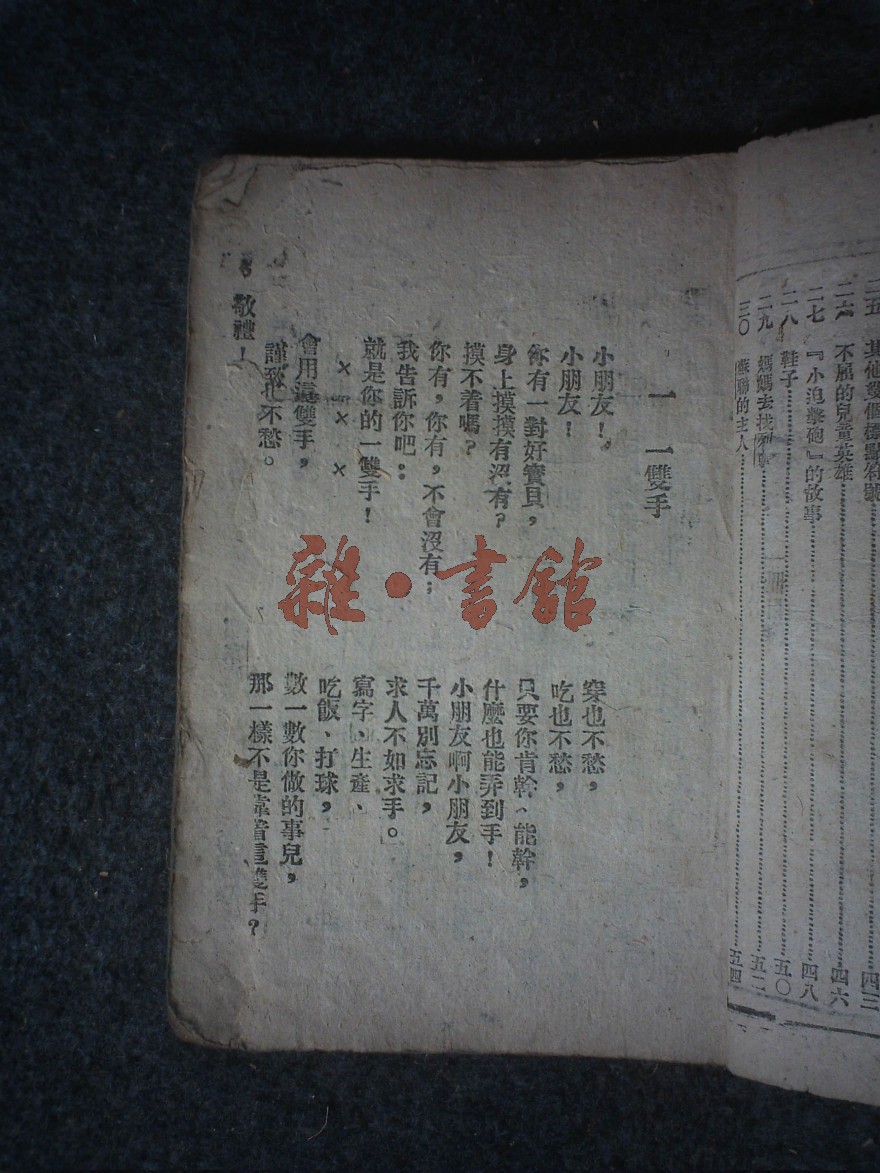 二五 其他幾個標點符號……四三
二六 不屈的兒童英雄……四六
二七 『小迫擊砲』的故事……四八
二八 鞋子……五〇
二九 媽媽去找……五二
三〇 蘇聯的主人……五四
一 一雙手
小朋友!
小朋友!
你有一對好寶貝,
身上摸摸有沒有?
摸不着嗎?
你有,你有,不會沒有;
我告訴你吧:
就是你的一雙手!
× × ×
會用這雙手,
謹致也不愁。
敬禮!
穿也不愁,
吃也不愁,
只要你肯幹、能幹,
什麼也能弄到手!
小朋友啊小朋友,
千萬別忘記,
求人不如求手。
寫字、生產、
吃飯、打球,
數一數你做的事兒,
那一樣不是靠着這雙手?
雜·書館